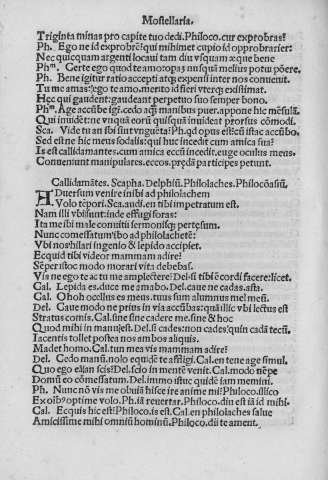 Mostellaria.
Triginta minas pro capite tuo dedi. Philoco. cur exprobras?
Ph. Ego ne id exprobrē? qui mihimet cupio id opprobrarier:
Nec quicquam argenti locaui tam diu vsquam æque bene
Phᵐ. Certe ego quod te amo: opaꝫ nusquā melius potui pōere.
Ph. Bene igitur ratio accepti atqꝫ expensi inter nos conuenit.
Tu me amas: ego te amo. merito id fieri vterqꝫ existimat.
Hęc qui gaudent: gaudeant perpetuo suo semper bono.
Phᵐ. Age accūbe igit̄. cedo aquā manibus puer. appone hic mēsulā.
Qui inuidēt: ne vnquā eorū quisquā inuideat prorsus cōmodi.
Sca. Vide tu an tibi sunt vnguēta? Ph. qd opus est? cū istac accūbo.
Sed est ne hic meus sodalis: qui huc incedit cum amica sua?
Is est callidamates. cum amica eccū incedit. euge oculus meus.
Conueniunt manipulares. eccos. prędā participes petunt.
Callidamātes. Scapha. Delphiū. Philolaches. Philocōasiū.
ADuersum venire mihi ad philolachem
Volo tēpori. Sca. audi. en tibi imperatum est.
Nam illi vbi sum: inde effugi foras:
Ita me ibi male conuiuii sermonisqꝫ pertęsum.
Nunc comessatum ibo ad philolachetē?
Vbi nos hilari ingenio & lepido accipiet.
Ecquid tibi videor mammam adire?
Sēper istoc modo morari vita debebas.
Vis ne ego te ac tu me amplectere? Del. si tibi ē cordi facere: licet.
Cal. Lepida es. duce me amabo. Del. caue ne cadas. asta.
Cal. Oh oh ocellus es meus. tuus sum alumnus mel meū.
Del. Caue modo ne prius in via accūbas: quā illic vbi lectus est
Stratus comis. Cal. sine sine cadere me. sine & hoc
Quod mihi in manu est. Del. si cades: non cades: quin cadā tecū.
Iacentis tollet postea nos ambos aliquis.
Madet homo. Cal. tun me ais mammam adire?
Del. Cedo manū. nolo equidē te affligi. Cal. en tene age simul.
Quo ego eā? an scis? Del. scio in mentē venit. Cal. modo nēpe
Domū eo cōmessatum. Del. immo istuc quidē iam memini.
Ph. Nunc nō vis me obuiā hisce ire anime mi? Philoco. illico
Ex oībꝰ optime volo. Ph. iā reuertar. Philoco. diu est iā id mihi.
Cal. Ecquis hic est? Philoco. is est. Cal. en philolaches salue
Amicissime mihi omniū hominū. Philoco. dii te ament.